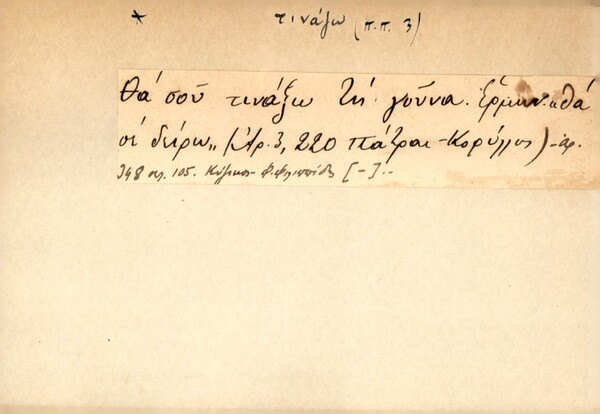 * τινάζω (π.π. 3)
Θά σοῦ τινάξω τή γοῦνα. Ἑρμην. „θά
σέ δείρω„ (Ἀρ. 3, 220 Πάτραι - Κορύλλος) - ἀρ.
348 σελ. 105. Κύζικος - Φ. Φιλιππίδης [-]..